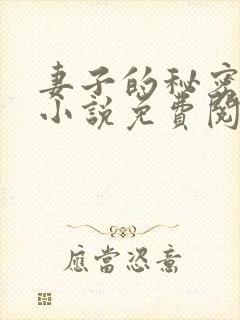 妻子的秘密
小説免費閱
應當恣意